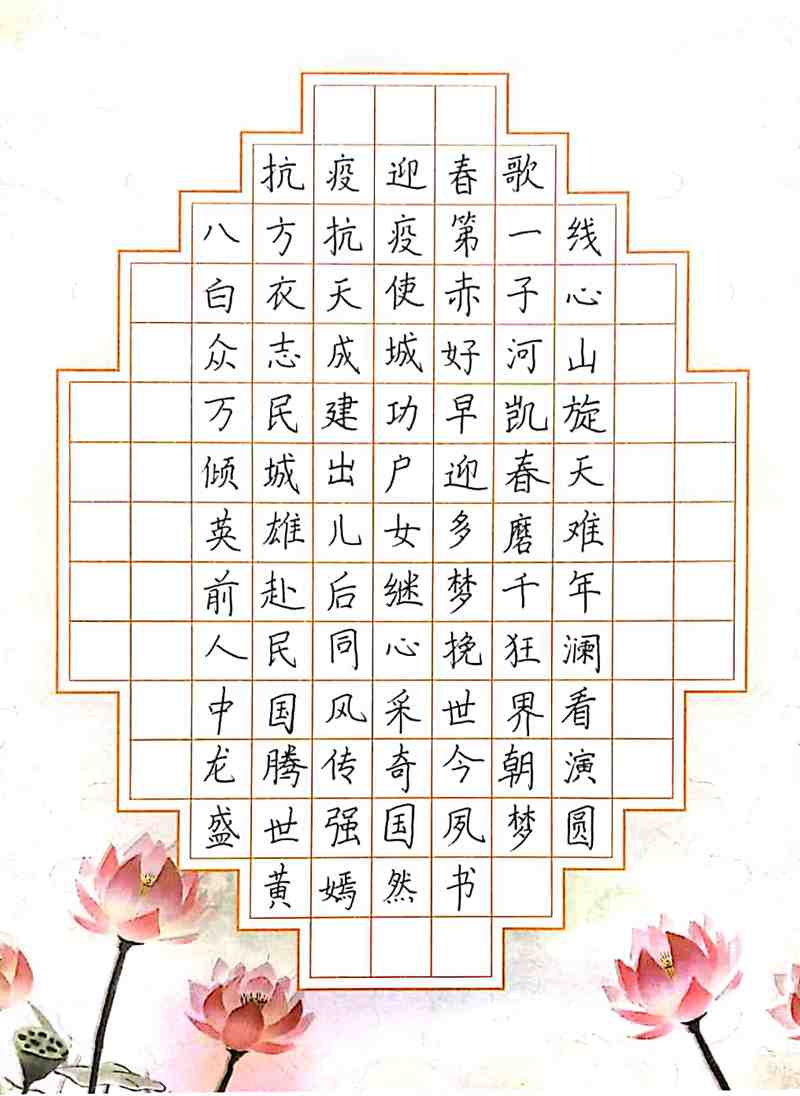 抗疫迎春歌
八方抗疫第一线
白衣天使赤子心
众志成城好河山
万民建功早凯旋
倾城出户迎春天
英雄儿女多磨难
前赴后继梦千年
人民同心挽狂澜
中国风采世界看
龙腾传奇今朝演
盛世强国夙梦圆
黄嫣然书